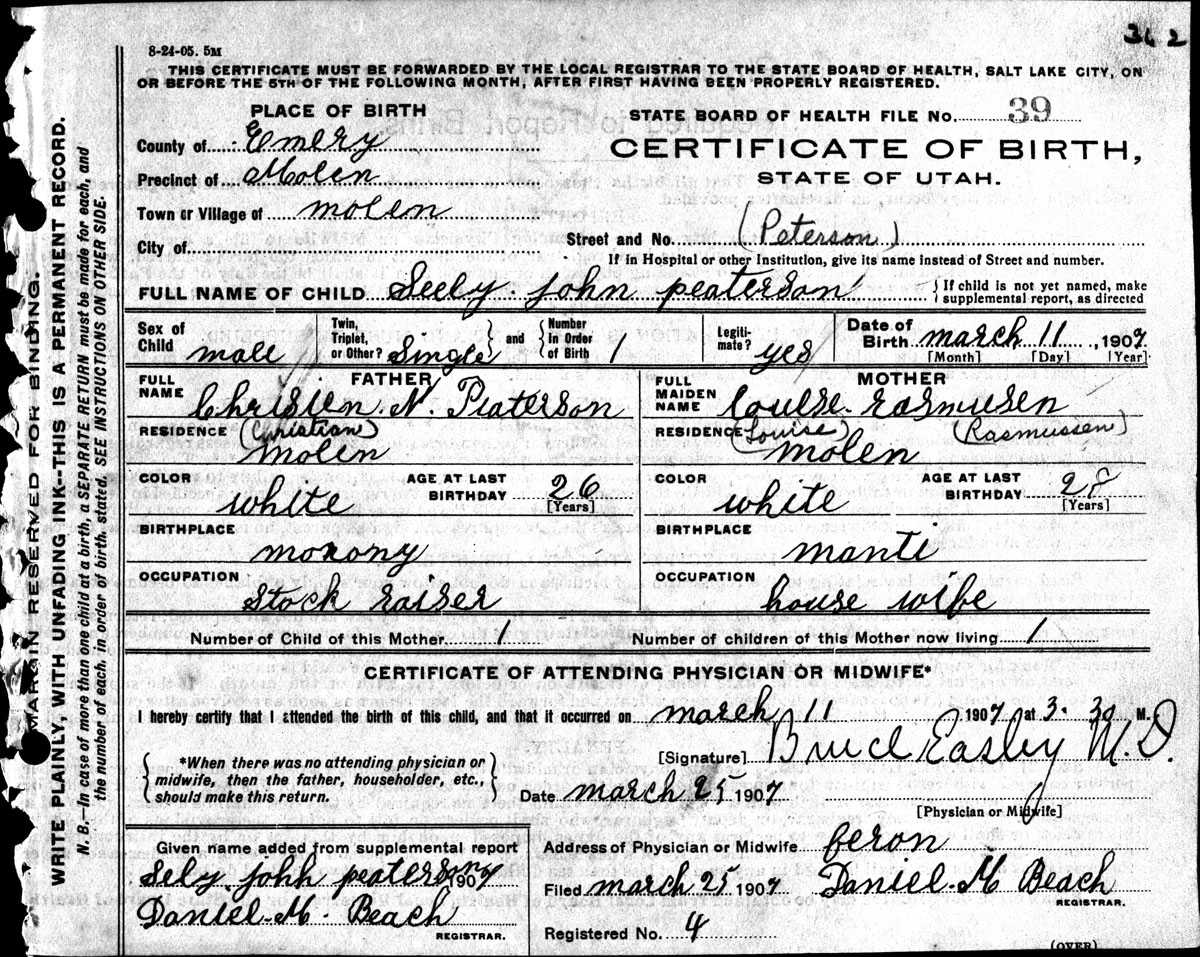 36 2
8-24-05. 5M
THIS CERTIFICATE MUST BE FORWARDED BY THE LOCAL REGISTRAR TO THE STATE BOARD OF HEALTH, SALT LAKE CITY, ON
OR BEFORE THE 5TH OF THE FOLLOWING MONTH, AFTER FIRST HAVING BEEN PROPERLY REGISTERED.
PLACE OF BIRTH
STATE BOARD OF HEALTH FILE No. 39
County of Emery
CERTIFICATE OF BIRTH,
Precinct of Molen
STATE OF UTAH.
Town or Village of molen
City of
Street and No. (Peterson)
If in Hospital or other Institution, give its name instead of Street and number.
FULL NAME OF CHILD Seely john peaterson
{If child is not yet named, make
supplemental report, as directed
Sex of Child male
Twin, Triplet, or Other? Single and Number in Order of Birth 1
Legitimate? yes
Date of Birth march 11, 1907
[Month] [Day] [Year]
FATHER
FULL NAME Christen N. Peaterson
(Christian)
RESIDENCE molen
COLOR white
AGE AT LAST BIRTHDAY 26
[Years]
BIRTHPLACE morony
OCCUPATION Stock raiser
MOTHER
FULL MAIDEN NAME Louise Rasmusen
(Louise) (Rasmussen)
RESIDENCE molen
COLOR white
AGE AT LAST BIRTHDAY
[Years]
BIRTHPLACE manti
OCCUPATION house wife
Number of Child of this Mother 1
Number of children of this Mother now living 1
CERTIFICATE OF ATTENDING PHYSICIAN OR MIDWIFE*
I hereby certify that I attended the birth of this child, and that it occurred on march 11 1907 at 3.30 M.
[Signature] Bruce Easley M.D.
{*When there was no attending physician or
midwife, then the father, householder, etc.,
should make this return.}
Date march 25 1907
[Physician or Midwife]
Given name added from supplemental report
Sely john peaterson 1907
Daniel M. Beach
REGISTRAR.
Address of Physician or Midwife feron
Filed march 25 1907 Daniel M Beach
REGISTRAR.
Registered No. 4
(OVER)
MARGIN RESERVED FOR BINDING.
WRITE PLAINLY, WITH UNFADING INK--THIS IS A PERMANENT RECORD.
N. B.—In case of more than one child at a birth, a SEPARATE RETURN must be made for each, and
the number of each, in order of birth, stated. SEE INSTRUCTIONS ON OTHER SIDE.